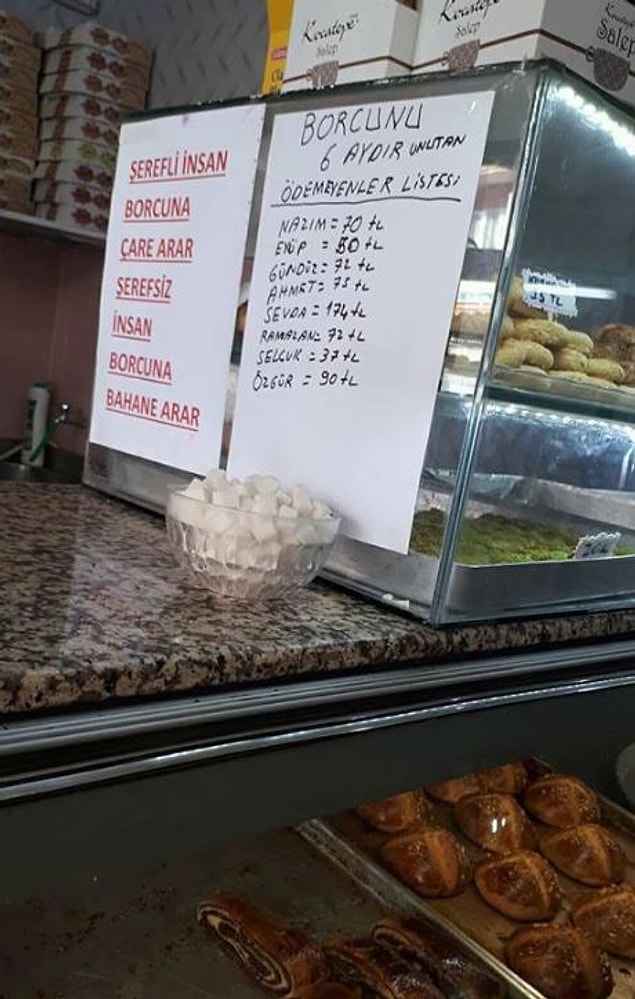 Kocatepe
Salep
Kocatepe
Salep
ŞEREFLİ İNSAN
BORCUNA
ÇARE ARAR
ŞEREFSİZ
İNSAN
BORCUNA
BAHANE ARAR
BORCUNU
6 AYDIR UNUTAN
ÖDEMEYENLER LİSTESİ
NAZIM = 70 tL
EYÜP = 80 tL
GÜNDÜZ = 72 tL
AHMET = 75 tL
SEVDA = 174 tL
RAMAZAN = 72 tL
SELÇUK = 37 tL
ÖZGÜR = 90 tL